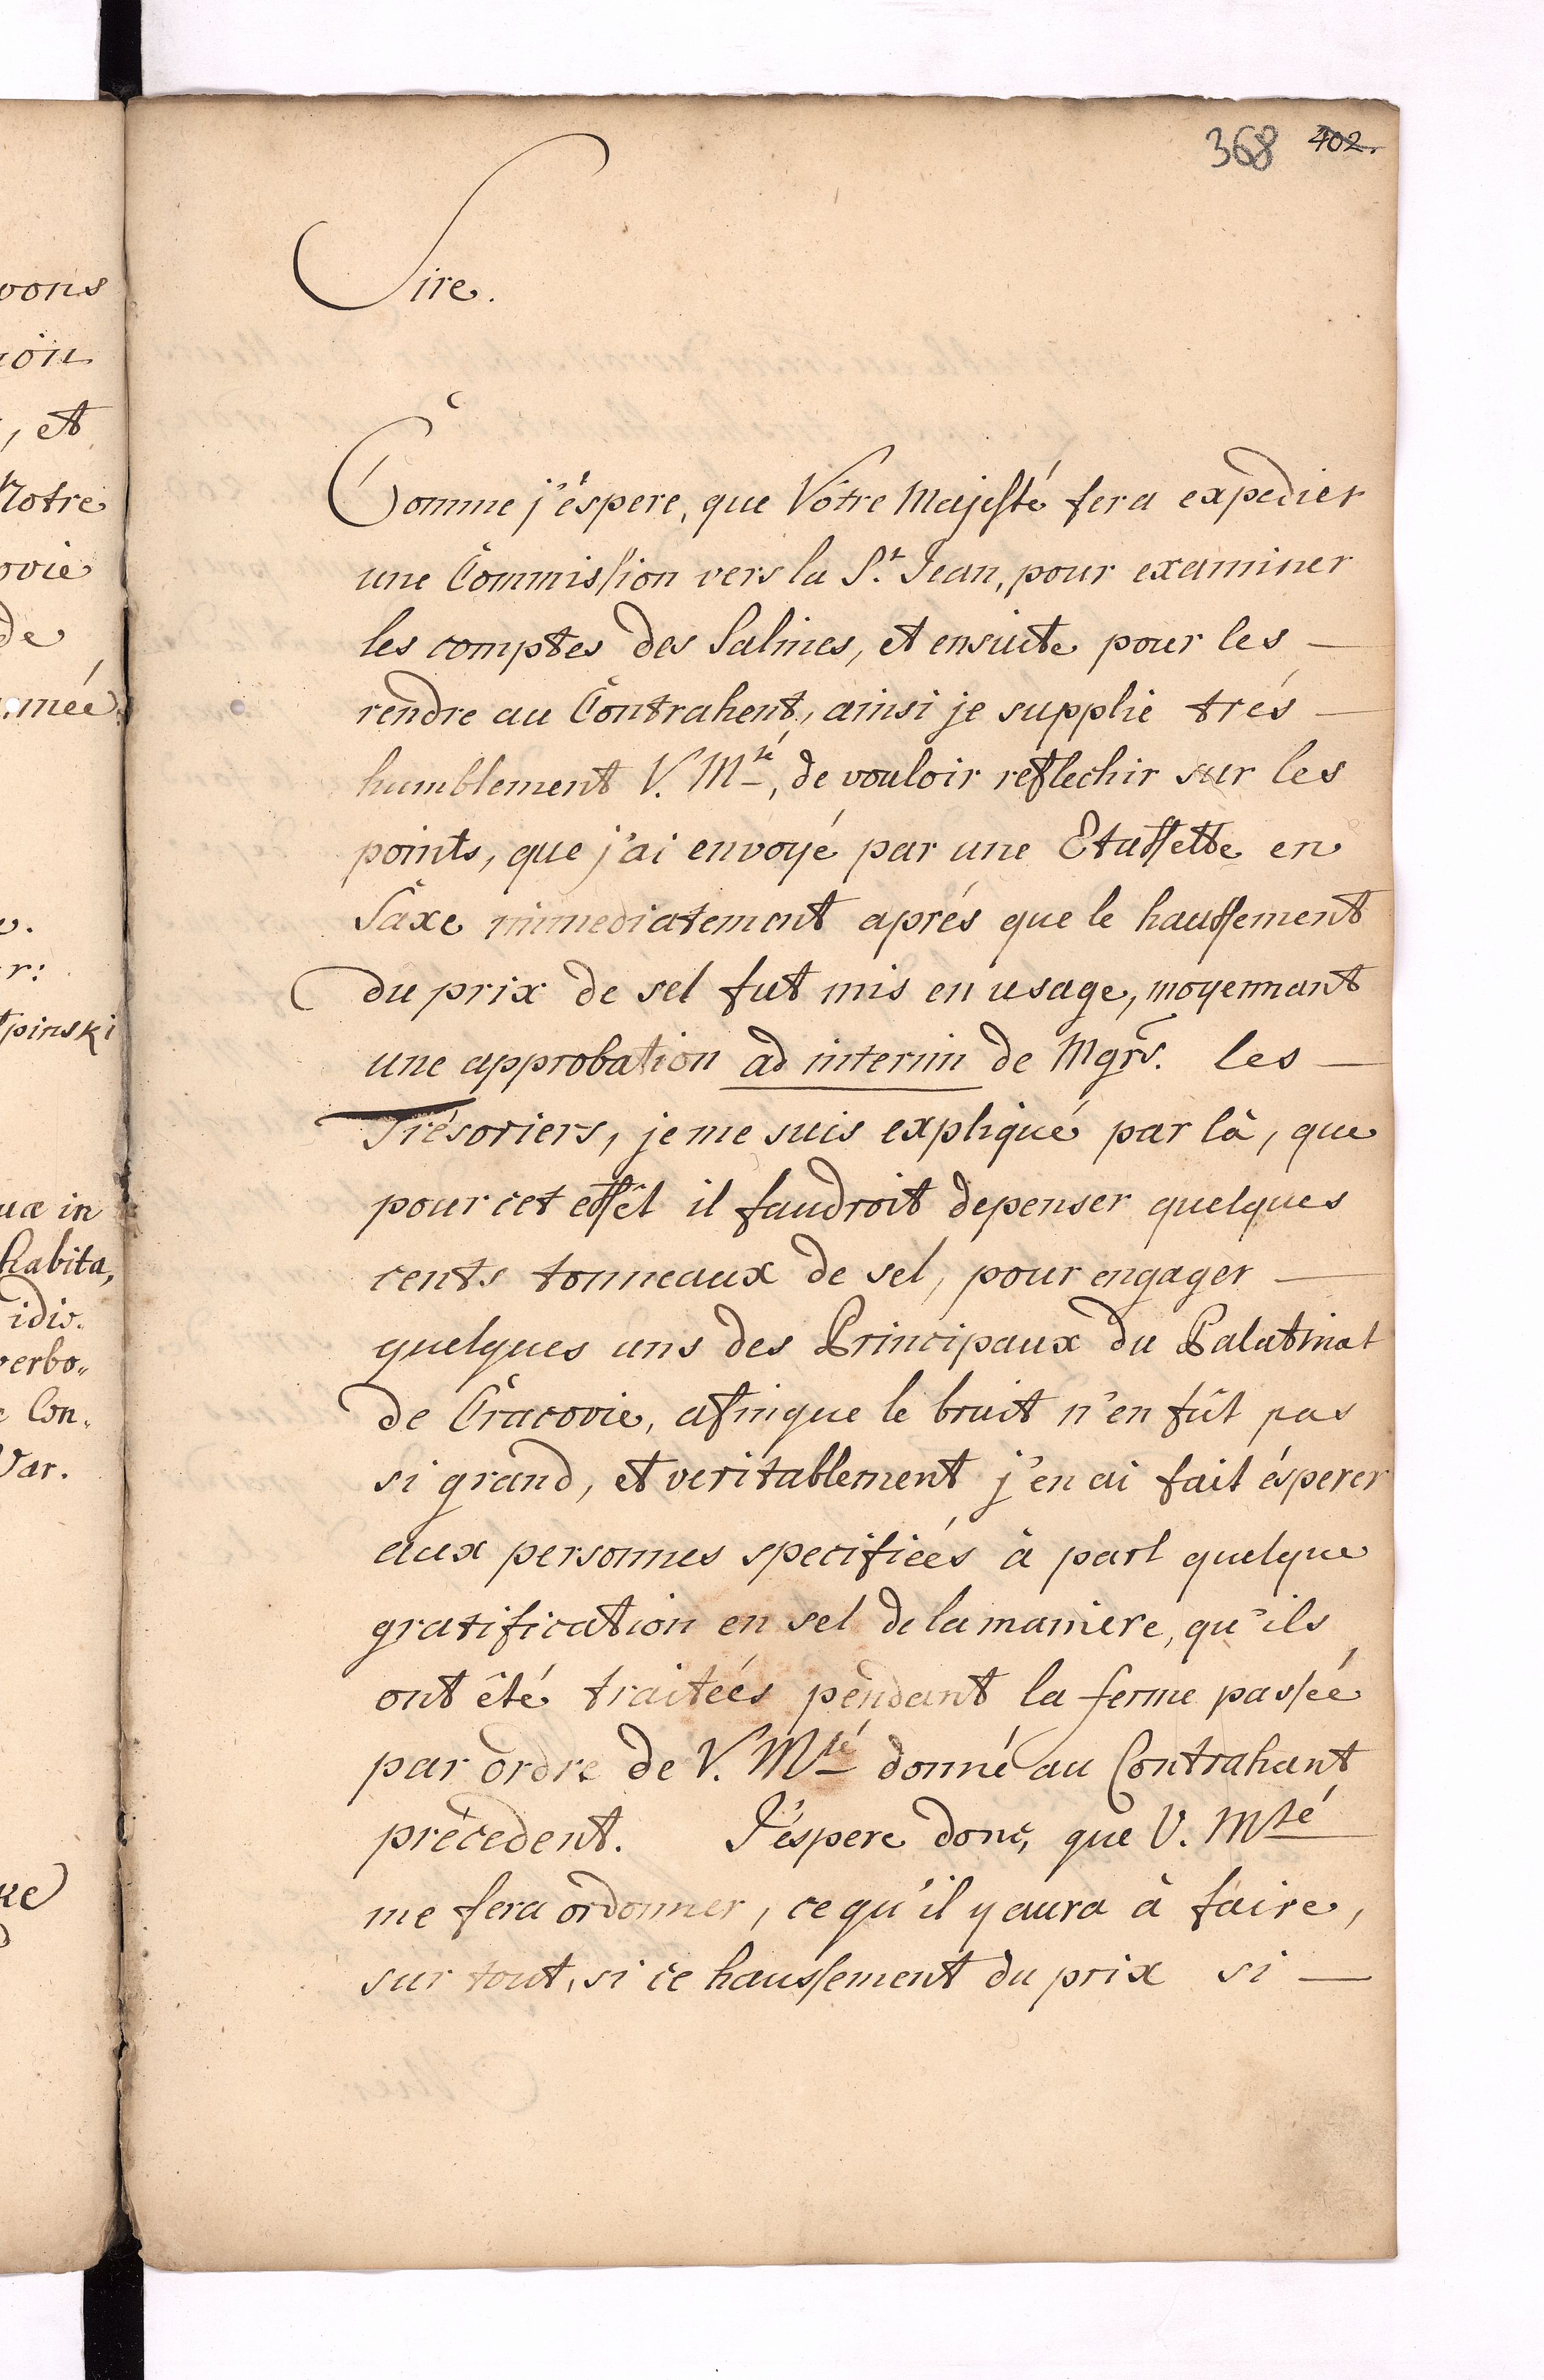 368 402.
Sire.
Comme j'éspere, que Vôtre Majesté fera expedier
une Commission vers la St. Jean, pour examiner
les comptes des Salines, et ensuite pour les —
rendre au Contrahent, ainsi je supplie trés —
humblement V. Mté, de vouloir reflechir sur les
points, que j'ai envoyé par une Etaffette en
Saxe immediatement aprés que le haussement
du prix de sel fut mis en usage, moyennant
une approbation ad interim de Mgrs. les —
Trésoriers, je me suis expliqué par là, que
pour cet effêt il faudroit depenser quelques
cents tonneaux de sel, pour engager —
quelques uns des Principaux du Palatinat
de Cracovie, afinque le bruit n'en fût pas
si grand, et veritablement j'en ai fait ésperer
aux personnes specifieés à part quelque
gratification en sel de la maniere, qu'ils
ont êté traiteés pendant la ferme passeé
par ordre de V. Mté donné au Contrahant
précedent. J'éspere donc, que V. Mté
me fera ordonner, ce qu'il y aura à faire,
sur tout, si ce haussement du prix si —
vons
et
Notre
ovie
de
meé
pinski
in
habita,
idis.
verbo„
Con„
Var.